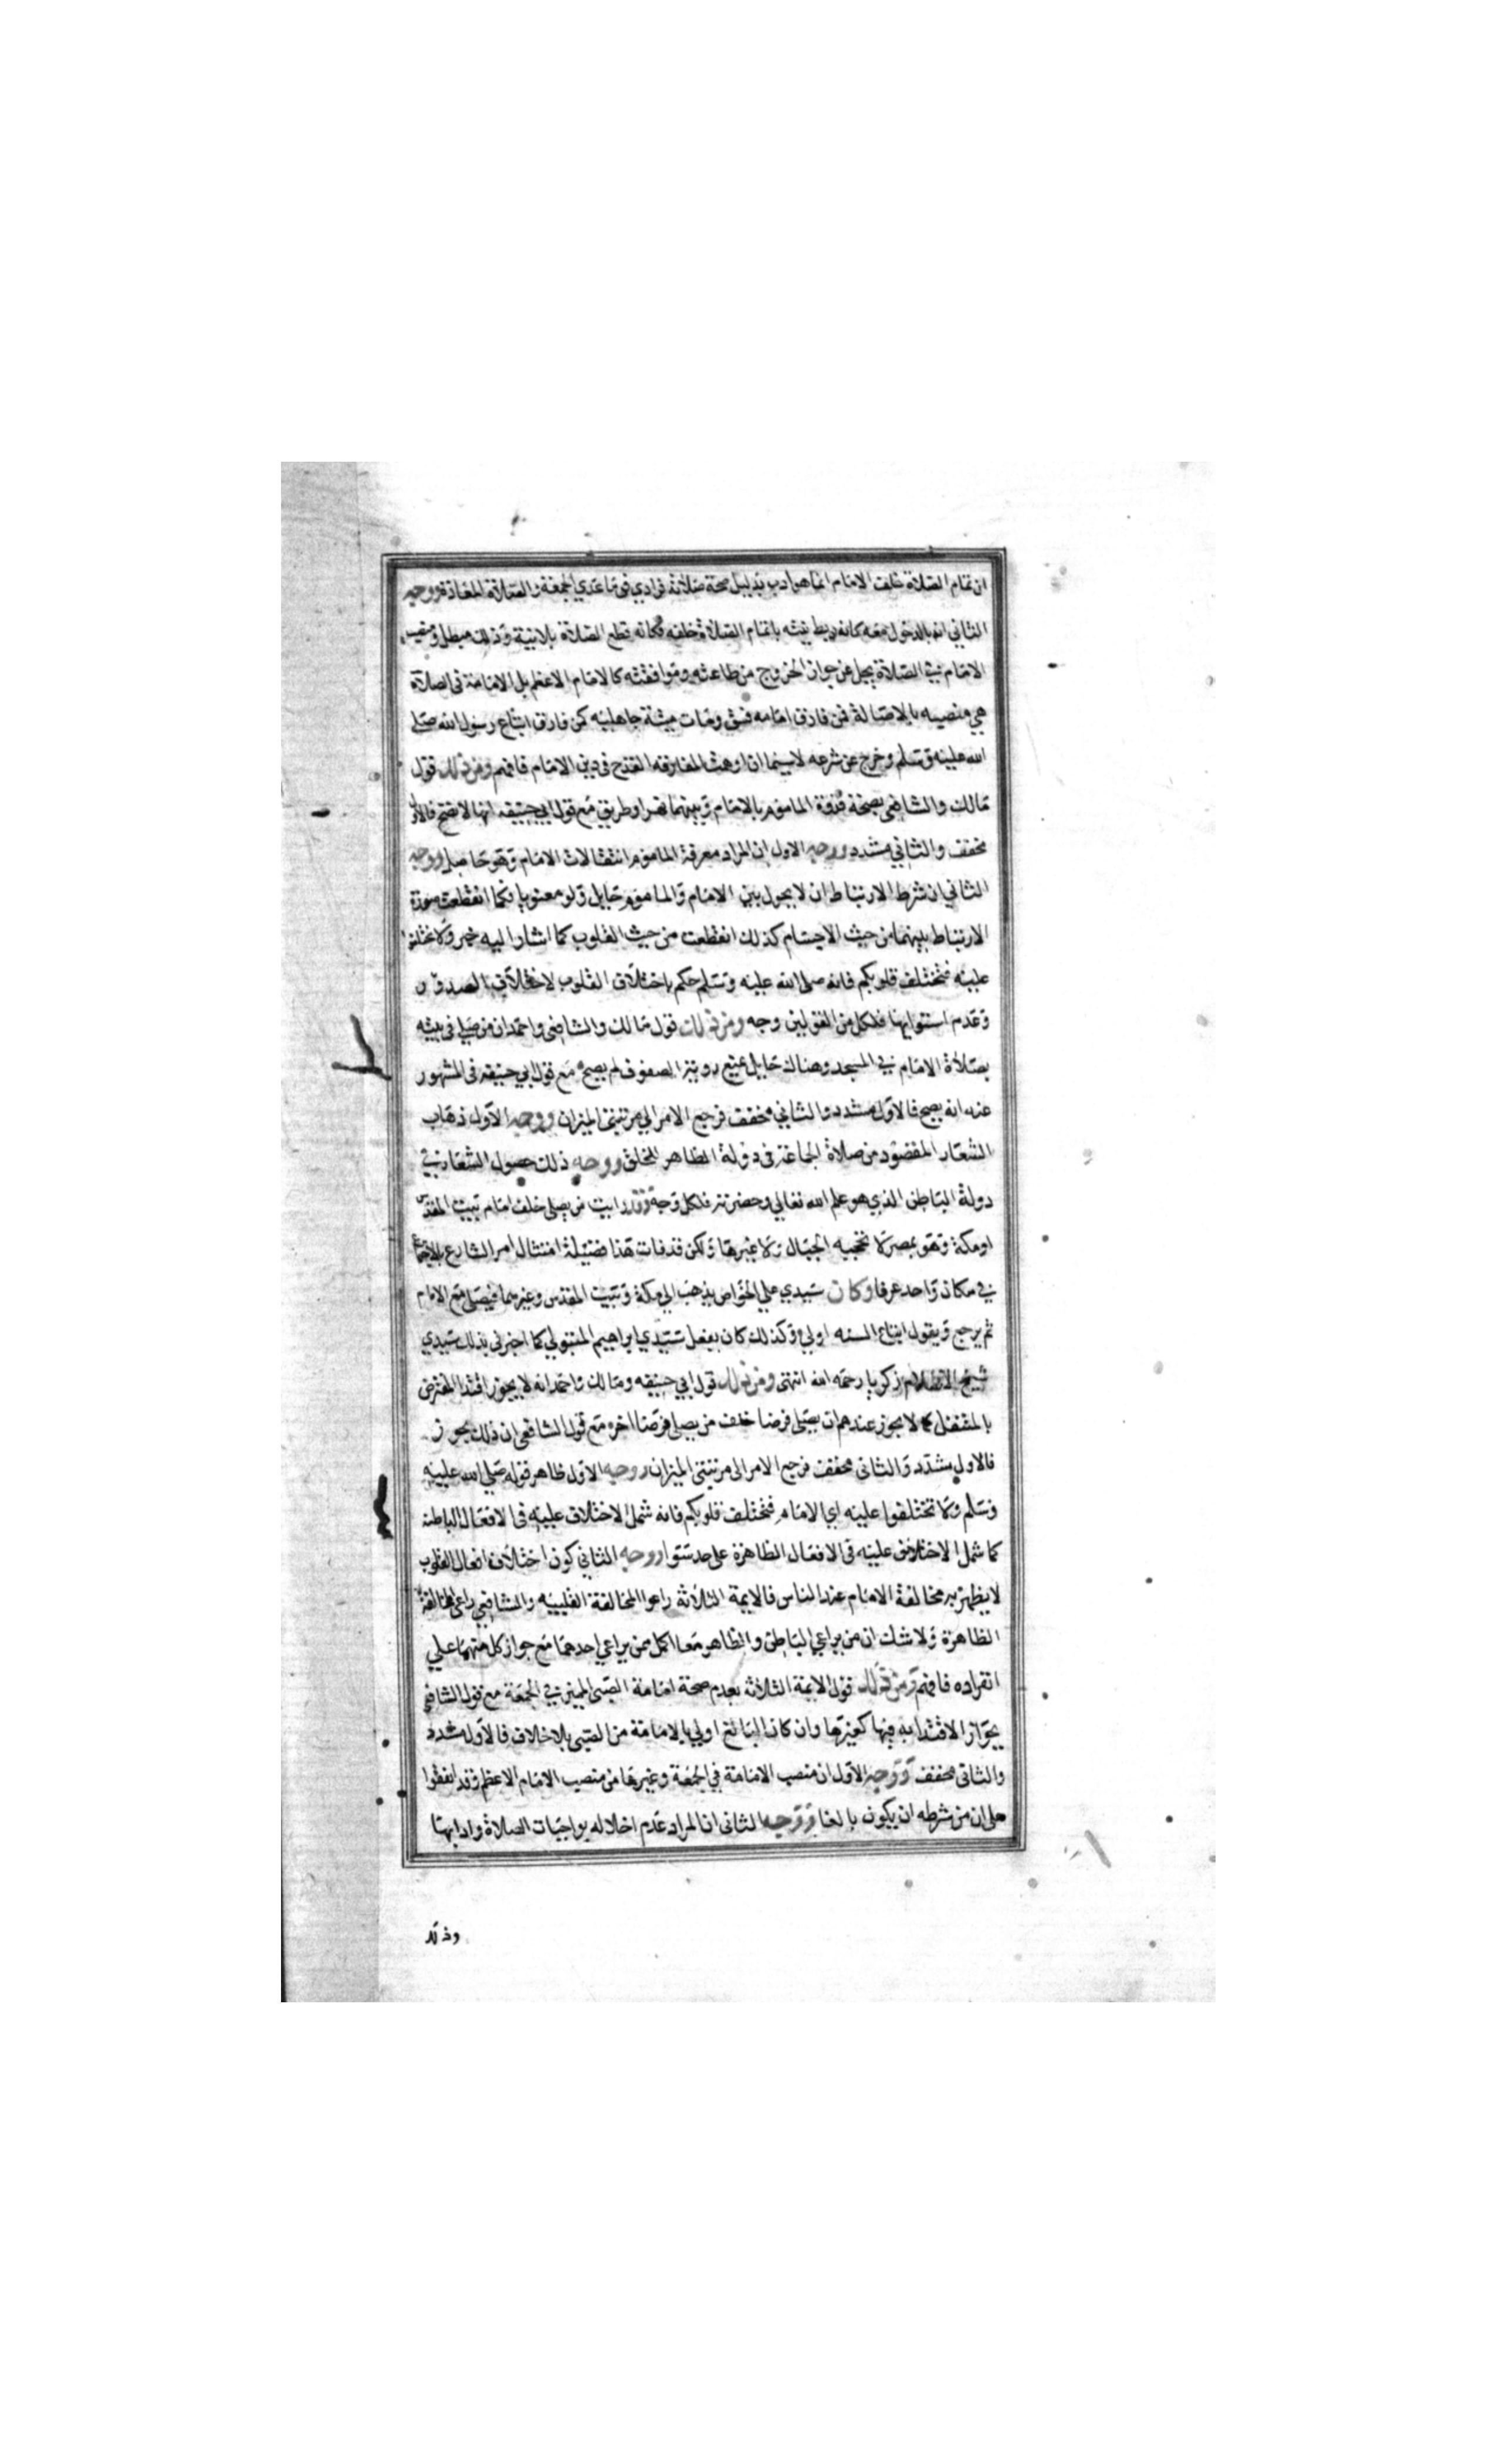 ان تمام الصلاة خلف الامام انما هو ادب بدليل صحة صلاته فرادي فى ما عدي الجمعة والصلاة المعادة ووجه
الثاني انه بالدخول معه كانه ربط نيته باتمام الصلاة خلفه فكانه قطع الصلاة بلا نية وذلك مبطل ومنصب
الامام في الصلاة يجل عن جواز الخروج من طاعته وموافقته كالامام الاعظم بل الامامة فى الصلاة
هي منصبه بالاصالة فمن فارق امامه فسق ومات ميتة جاهلية كمن فارق اتباع رسول الله صلى
الله عليه وسلم وخرج عن شرعه لا سيما ان اوهمت المفارقه القدح فى دين الامام فافهم ومن ذلك قول
مالك والشافعي بصحة قدوة الماموم بالامام وبينهما نهر او طريق مع قول ابي حنيفه انها لا تصح فالاول
مخفف والثاني مشدد ووجه الاول ان المراد معرفة الماموم انتقالات الامام وهو حاصل ووجه
الثاني ان شرط الارتباط ان لا يحول بين الامام والماموم حايل ولو معنويا فكما انقطعت صورة
الارتباط بينهما من حيث الاجسام كذلك انقطعت من حيث القلوب كما اشار اليه خبر ولا تختلفوا
عليه فتختلف قلوبكم فانه صلى الله عليه وسلم حكم باختلاف القلوب لاختلاف الصدور
وعدم استوايها فلكل من القولين وجه ومن ذلك قول مالك والشافعى واحمد ان من صلى فى بيته
بصلاة الامام في المسجد وهناك حايل يمنع روية الصفوف لم يصح مع قول ابي حنيفه فى المشهور
عنه انه يصح فالاول مشدد والثاني مخفف فرجع الامر الي مرتبتى الميزان ووجه الاول ذهاب
الشعار المقصود من صلاة الجماعة فى دولة الظاهر للخلق ووجه ذلك حصول الشعار في
دولة الباطن الذي هو علم الله تعالي وحضرته فلكل وجه وقد رايت من يصلى خلف امام بيت المقدس
او مكة وهو بمصر لا تحجبه الجبال ولا غيرها ولكن قد فات هذا فضيلة امتثال امر الشارع بالاجتماع
في مكان واحد عرفا وكان سيدي علي الخواص يذهب الى مكة وبيت المقدس وغيرهما فيصلى مع الامام
ثم يرجع ويقول اتباع السنه اولي وكذلك كان يفعل سيدي ابراهيم المتبولي كما اخبرنى بذلك سيدي
شيخ الاسلام زكريا رحمه الله انتهى ومن ذلك قول ابي حنيفه ومالك واحمد انه لا يجوز اقتدا المفترض
بالمتنفل كما لا يجوز عندهم ان يصلى فرضا خلف من يصلى فرضا اخر مع قول الشافعي ان ذلك يجوز
فالاول مشدد والثانى مخفف فرجع الامر الى مرتبتى الميزان ووجه الاول ظاهر قوله صلي الله عليه
وسلم ولا تختلفوا عليه اي الامام فتختلف قلوبكم فانه شمل الاختلاف عليه فى الافعال الباطنه
كما شمل الاختلاف عليه فى الافعال الظاهرة على حد سوا ووجه الثاني كون اختلاف افعال القلوب
لا يظهر به مخالفة الامام عند الناس فالايمة الثلاثه راعوا المخالفة القلبيه والشافعي راعى المخالفة
الظاهرة ولا شك ان من يراعي الباطن والظاهر معا اكمل ممن يراعي احدهما مع جواز كل منهما علي
انفراده فافهم ومن ذلك قول الايمة الثلاثه بعدم صحة امامة الصبى المميز في الجمعة مع قول الشافعي
بجواز الاقتدا به فيها كغيرها وان كان البالغ اولي بالامامة من الصبى بلا خلاف فالاول مشدد
والثانى مخفف ووجه الاول ان منصب الامامة في الجمعة وغيرها من منصب الامام الاعظم وقد اتفقوا
على ان من شرطه ان يكون بالغا ووجه الثانى ان المراد عدم اخلاله بواجبات الصلاة وادابها
وذلك